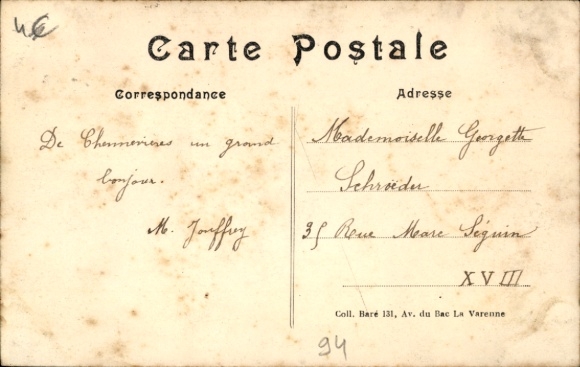 4€
Carte Postale
Correspondance
Adresse
De Chennevières un grand
bonjour.
M. Jouffrey
Mademoiselle Georgette
Schrœder
35 Rue Marc Séguin
XVIII
Coll. Baré 131, Av. du Bac La Varenne
94